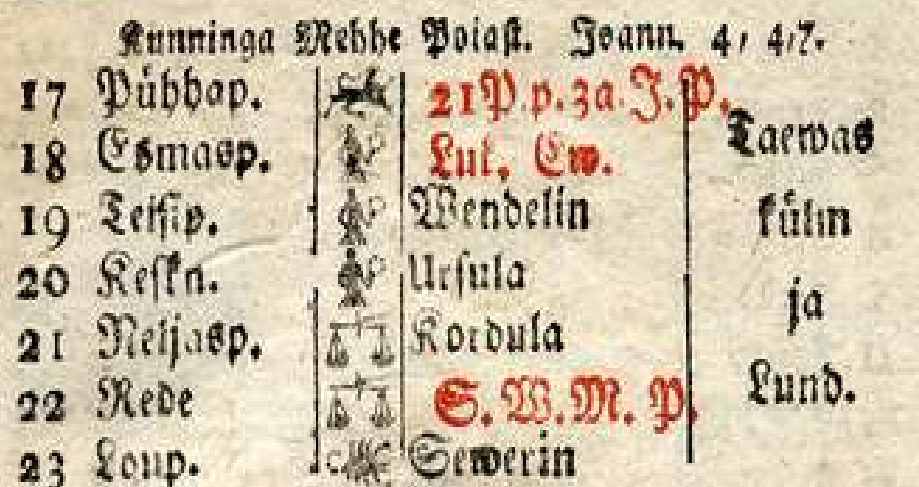 Kunninga Mehhe Poiast. Joann. 4, 47.
17 Pühhap. 21 P. p. 3a. J. P.
18 Esmasp. Luk. Ew. Taewas
19 Teisip. Wendelin külm
20 Keskn. Ursula
21 Neljasp. Kordula ja
22 Rede S. W. M. P. Lund.
23 Loup. Sewerin